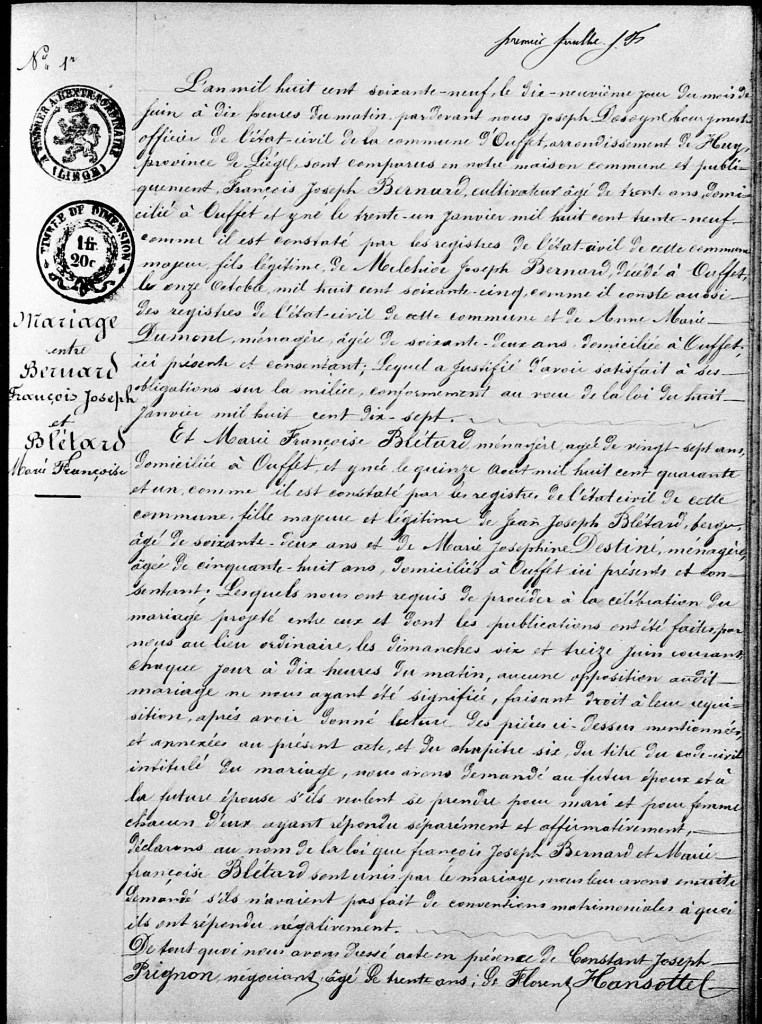 premier feuillet
N° 1r
A TIMBRER A L'EXTRAORDINAIRE
(LIEGE)
TIMBRE DE DIMENSION
1 fr
20c
Mariage
entre
Bernard
François Joseph
et
Blétard
Marie Françoise
L'an mil huit cent soixante-neuf, le dix-neuvième jour du mois de
juin à dix heures du matin, pardevant nous Joseph
officier de l'état-civil de la commune d'Ouffet, arrondissement de Huy,
province de Liége, sont comparus en notre maison commune et publi-
quement, François Joseph Bernard, cultivateur âgé de trente ans, domi-
cilié à Ouffet et y né le trente-un janvier mil huit cent trente-neuf
comme il est constaté par les registres de l'état-civil de cette commune
majeur, fils légitime, de Melchior Joseph Bernard, décédé à Ouffet,
le onze Octobre, mil huit cent soixante-cinq, comme il conste aussi
des registres de l'état-civil de cette commune et de Anne Marie
Dumont, ménagère, âgée de soixante-deux ans, domiciliée à Ouffet,
ici présente et consentant; Lequel a justifié d'avoir satisfait à ses
obligations sur la milice, conformement au vœu de la loi du huit
Janvier mil huit cent dix-sept.
Et Marie Françoise Blétard, ménagère, agée de vingt-sept ans,
domiciliée à Ouffet, et y née le quinze Aout mil huit cent quarante
et un, comme il est constaté par les registres de l'état civil de cette
commune, fille majeure et légitime de Jean Joseph Blétard, berger,
âgé de soixante-deux ans et de Marie Josephine Destiné, ménagère,
âgée de cinquante-huit ans, domiciliés à Ouffet ici présents et con-
sentant; Lesquels nous ont requis de procéder à la célébration du
mariage projeté entre eux et dont les publications ont été faites, par
nous au lieu ordinaire, les dimanches six et treize juin courant,
chaque jour à dix heures du matin, aucune opposition audit
mariage ne nous ayant été signifiée, faisant droit à leur requi-
sition, après avoir donné lecture des pièces ci-dessus mentionnées,
et annexées au présent acte, et du chapitre six, du titre du code-civil
intitulé du mariage, nous avons demandé au futur époux et à
la future épouse s'ils veulent se prendre pour mari et pour femme
chacun d'eux ayant répondu séparément et affirmativement,
déclarons au nom de la loi que françois Joseph Bernard et Marie
françoise Blétard sont unis par le mariage, nous leur avons ensuite
demandé s'ils n'avaient pas fait de conventions matrimoniales à quoi
ils ont répondu négativement.
De tout quoi nous avons dressé acte en présence de Constant Joseph
Prignon, négociant, âgé de trente ans; De Florent Hansotte